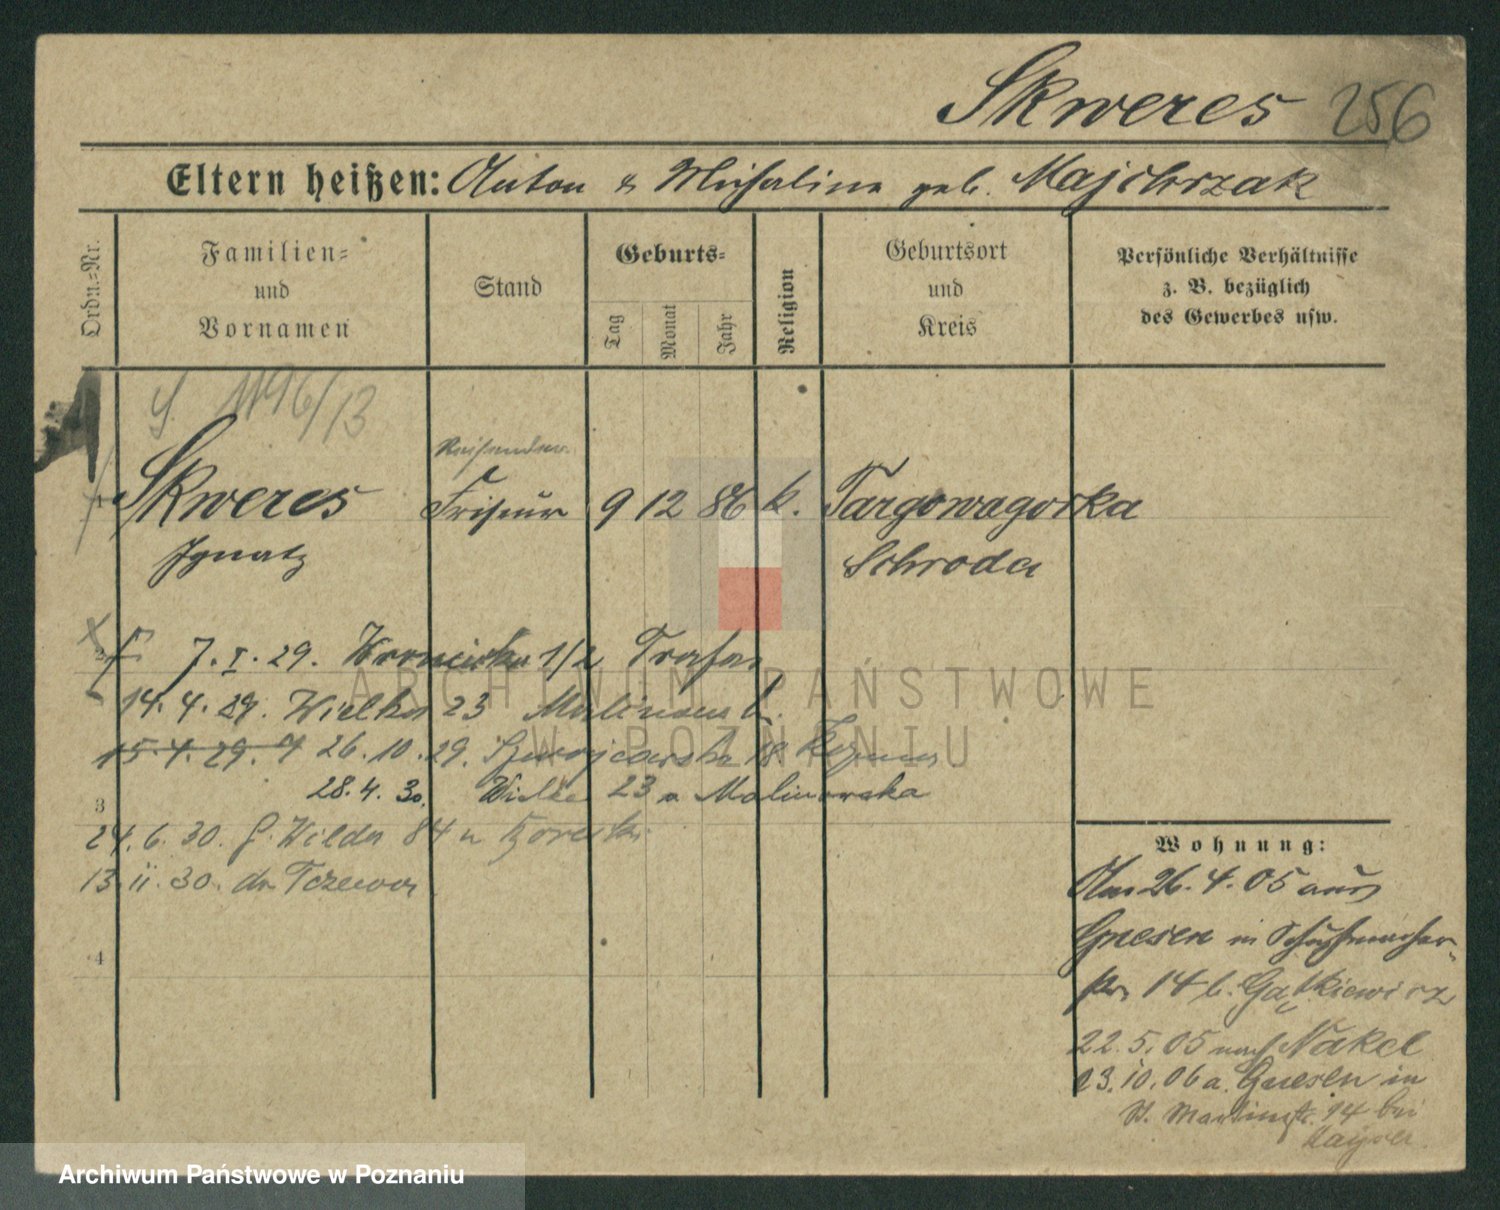 Skweres 256
Eltern heißen: Anton & Michalina geb. Majchrzak
Ordn.-Nr.
Familien-
und
Vornamen
Stand
Geburts-
Tag
Monat
Jahr
Religion
Geburtsort
und
Kreis
Persönliche Verhältnisse
z. B. bezüglich
des Gewerbes usw.
1196/13
Reisender
1 Skweres Friseur 9 12 86 k. Targowagorka
Ignatz Schroda
2 7. I. 29. 1/2
14. 4. 29. Wielka 23
15. 4. 29. 26. 10. 29. 18
28. 4. 30. Wielka 23 Malinowska
3
24. 6. 30. G. Wilda 84
13. 11. 30. do Tczewa
4
Wohnung:
Am 26. 4. 05 aus
Gnesen in Schuhmacher-
str. 14 b. Gątkiewicz
22. 5. 05 nach Nakel
23. 10. 06 a. Gnesen in
St. Martinstr. 14 bei
ARCHIWUM PAŃSTWOWE
W POZNANIU
Archiwum Państwowe w Poznaniu